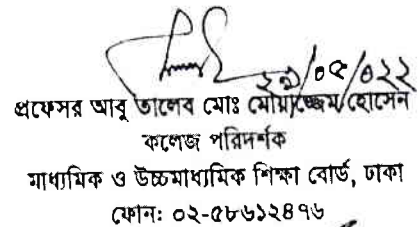 ২৯/০৫/০২২
প্রফেসর আবু তালেব মোঃ মোয়াজ্জেম হোসেন
কলেজ পরিদর্শক
মাধ্যমিক ও উচ্চমাধ্যমিক শিক্ষা বোর্ড, ঢাকা
ফোন: ০২-৫৮৬১২৪৭৬